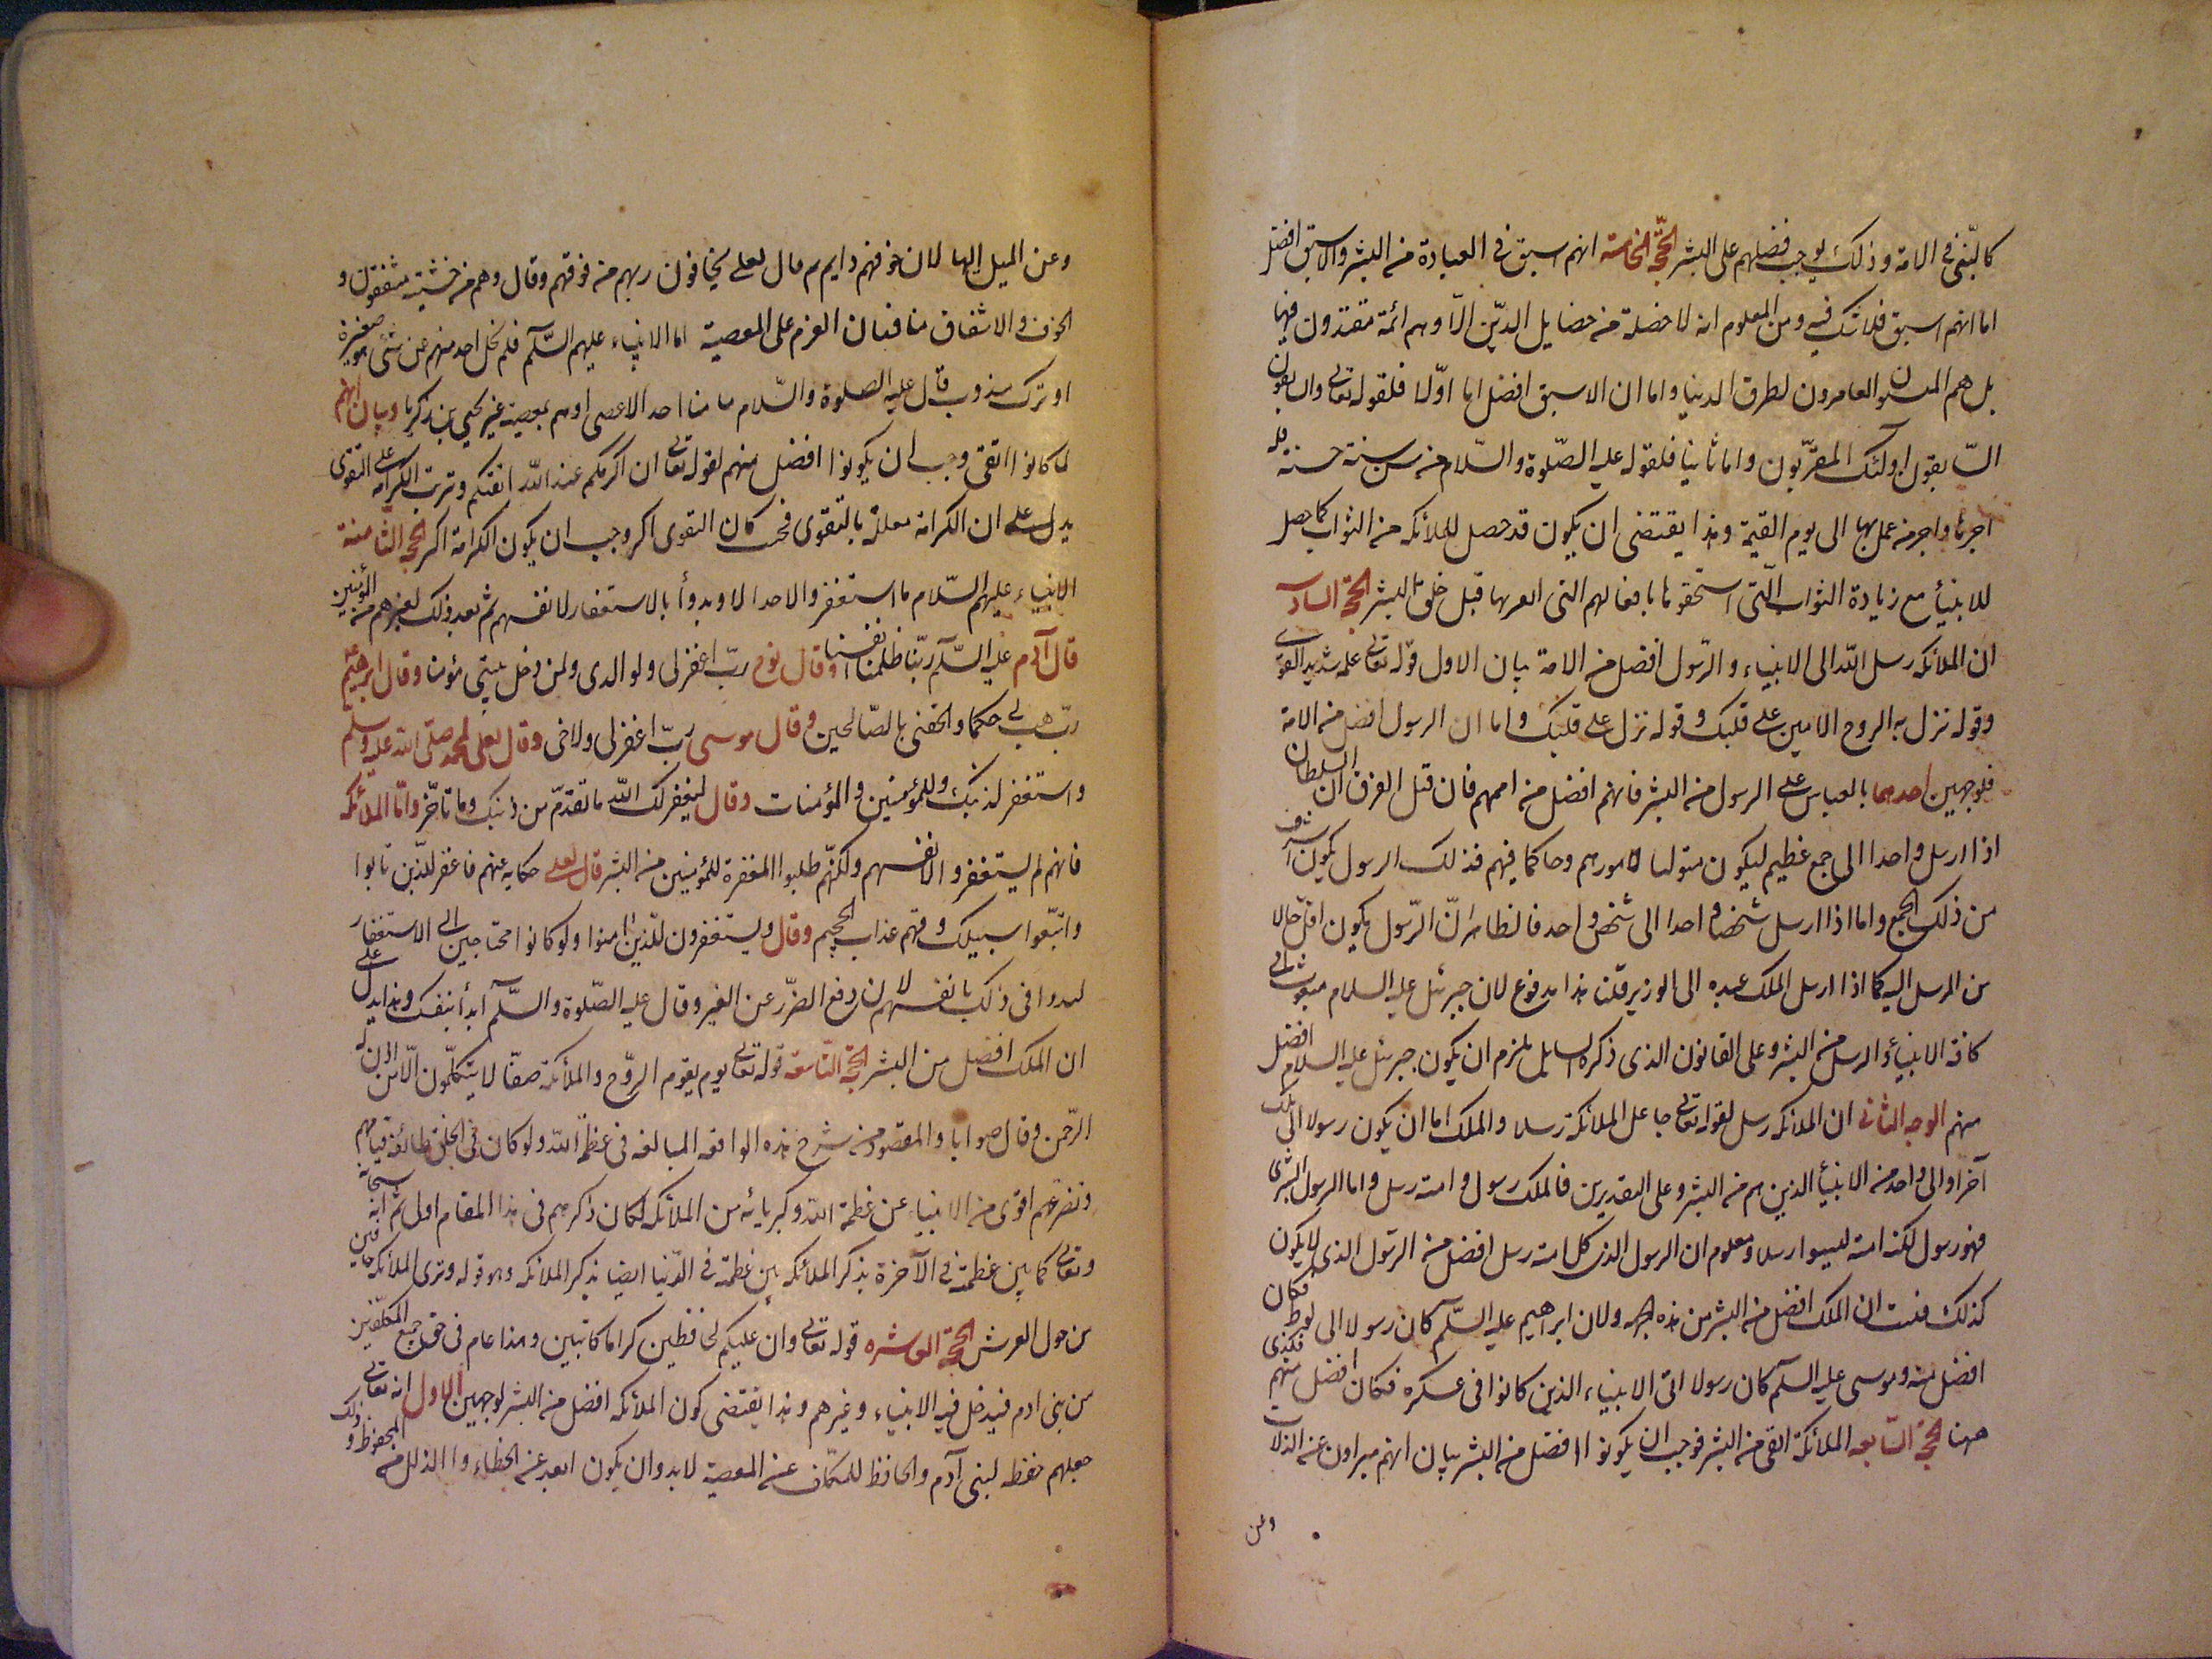 كالنبى فى الامة وذلك يوجب فضلهم على البشر الحجة الخامسة انهم اسبق فى العبادة من البشر والاسبق افضل
اما انهم اسبق فلا شك فيه ومن المعلوم انه لا خصلة من خصايل الدين الا وهم ائمة مقتدون فيها
بل هم المنشئون العامرون لطرق الدنيا واما ان الاسبق افضل اما اولا فلقوله تعالى والسابقون
السابقون اولئك المقربون واما ثانيا فلقوله عليه الصلوة والسلام من سن سنة حسنة فله
اجرها واجر من عمل بها الى يوم القيمة وهذا يقتضى ان يكون قد حصل للملائكة من الثواب كما حصل
للانبياء مع زيادة الثواب التى استحقوها بافعالهم التى قبل خلق البشر الحجة السادسة
ان الملائكة رسل الله الى الانبياء والرسول افضل من الامة بيان الاول قوله تعالى علمه شديد القوى
وقوله نزل به الروح الامين على قلبك وقوله نزل على قلبك واما ان الرسول افضل من الامة
فلوجهين احدهما بالقياس على الرسول من البشر فانهم افضل من اممهم فان قيل العرف ان السلطان
اذا ارسل واحدا الى جمع عظيم ليكون متوليا لامورهم وحاكما فيهم فذلك الرسول يكون اشرف
من ذلك الجمع واما اذا ارسل شخصا واحدا الى شخص واحد فالظاهر ان الرسول يكون اقل حالا
من المرسل اليه كما اذا ارسل الملك عبده الى الوزير قلت هذا مدفوع لان جبرئيل عليه السلام مبعوث الى
كافة الانبياء والرسل من البشر وعلى القانون الذى ذكره السايل يلزم ان يكون جبرئيل عليه السلام افضل
منهم الوجه الثانى ان الملائكة رسل لقوله تعالى جاعل الملائكة رسلا والملك اما ان يكون رسولا الى ملك
آخر او الى واحد من الانبياء الذين هم من البشر وعلى التقديرين فالملك رسول وامته رسل واما الرسول البشرى
فهو رسول لكنه امته ليسوا رسلا ومعلوم ان الرسول الذى كل امته رسل افضل من الرسول الذى لا يكون
كذلك فثبت ان الملك افضل من البشر من هذه الجهة ولان ابراهيم عليه السلم كان رسولا الى لوط فكان
افضل منه وموسى عليه السلم كان رسولا الى الانبياء الذين كانوا فى عسكره فكان افضل منهم فكذى
ههنا الحجة السابعة الملائكة اتقى من البشر فوجب ان يكونوا افضل من البشر بيان انهم مبراون عن الزلات
وعن
وعن الميل اليها لان خوفهم دايم قال تعلى يخافون ربهم من فوقهم وقال وهم من خشيته مشفقون و
الخوف والاشفاق منافيان العزم على المعصية اما الانبياء عليهم السلم فلم يخل احد منهم عن شئ هو صغيرة
او ترك مندوب قال عليه الصلوة والسلام ما منا احد الا عصى او هم بمعصية غير يحيى بن زكريا وبيان انهم
لما كانوا اتقى وجب ان يكونوا افضل منهم لقوله تعالى ان اكرمكم عند الله اتقيكم وترتب الكرامة على التقوى
يدل على ان الكرامة معللة بالتقوى فحيث كان التقوى اكثر وجب ان يكون الكرامة اكثر الحجة الثامنة
الانبياء عليهم السلام ما استغفروا لاحد الا وبدوأ بالاستغفار لانفسهم ثم بعد ذلك لغيرهم من المؤمنين
قال آدم عليه السلم ربنا ظلمنا انفسنا وقال نوح رب اغفر لى ولوالدى ولمن دخل بيتى مؤمنا وقال ابرهيم
رب هب لى حكما والحقنى بالصالحين وقال موسى رب اغفر لى ولاخى وقال تعلى لمحمد صلى الله عليه وسلم
واستغفر لذنبك وللمؤمنين والمؤمنات وقال ليغفر لك الله ما تقدم من ذنبك وما تاخر واما الملائكة
فانهم لم يستغفروا لانفسهم ولكنهم طلبوا المغفرة للمؤمنين من البشر قال تعلى حكاية عنهم فاغفر للذين تابوا
واتبعوا سبيلك وقهم عذاب الجحيم وقال ويستغفرون للذين امنوا ولو كانوا محتاجين الى الاستغفار
لبدوا فى ذلك بانفسهم لان دفع الضرر عن الغير وقال عليه الصلوة والسلم ابدأ بنفسك وهذا يدل على
ان الملك افضل من البشر الحجة التاسعة قوله تعالى يوم يقوم الروح والملائكة صفا لا يتكلمون الا من اذن له
الرحمن وقال صوابا والمقصود من شرح هذه الواقعة المبالغة فى عظمة الله ولو كان فى الخلق طائفة قيامهم
وتضرعهم اقوى من الانبياء عن عظمة الله وكبريائه من الملائكة لكان ذكرهم فى هذا المقام اولى ثم انه سبحانه
وتعالى كما بين عظمته فى الآخرة بذكر الملائكة بين عظمته فى الدنيا ايضا بذكر الملائكة وهو قوله وترى الملائكة حافين
من حول العرش الحجة العاشرة قوله تعالى وان عليكم لحافظين كراما كاتبين وهذا عام فى حق جميع المكلفين
من بنى ادم فيدخل فيه الانبياء وغيرهم وهذا يقتضى كون الملائكة افضل من البشر لوجهين الاول انه تعالى
جعلهم حفظة لبنى آدم والحافظ للمكلف عن المعصية لا بد وان يكون ابعد عن الخطاء والزلل من المحفوظ وذلك